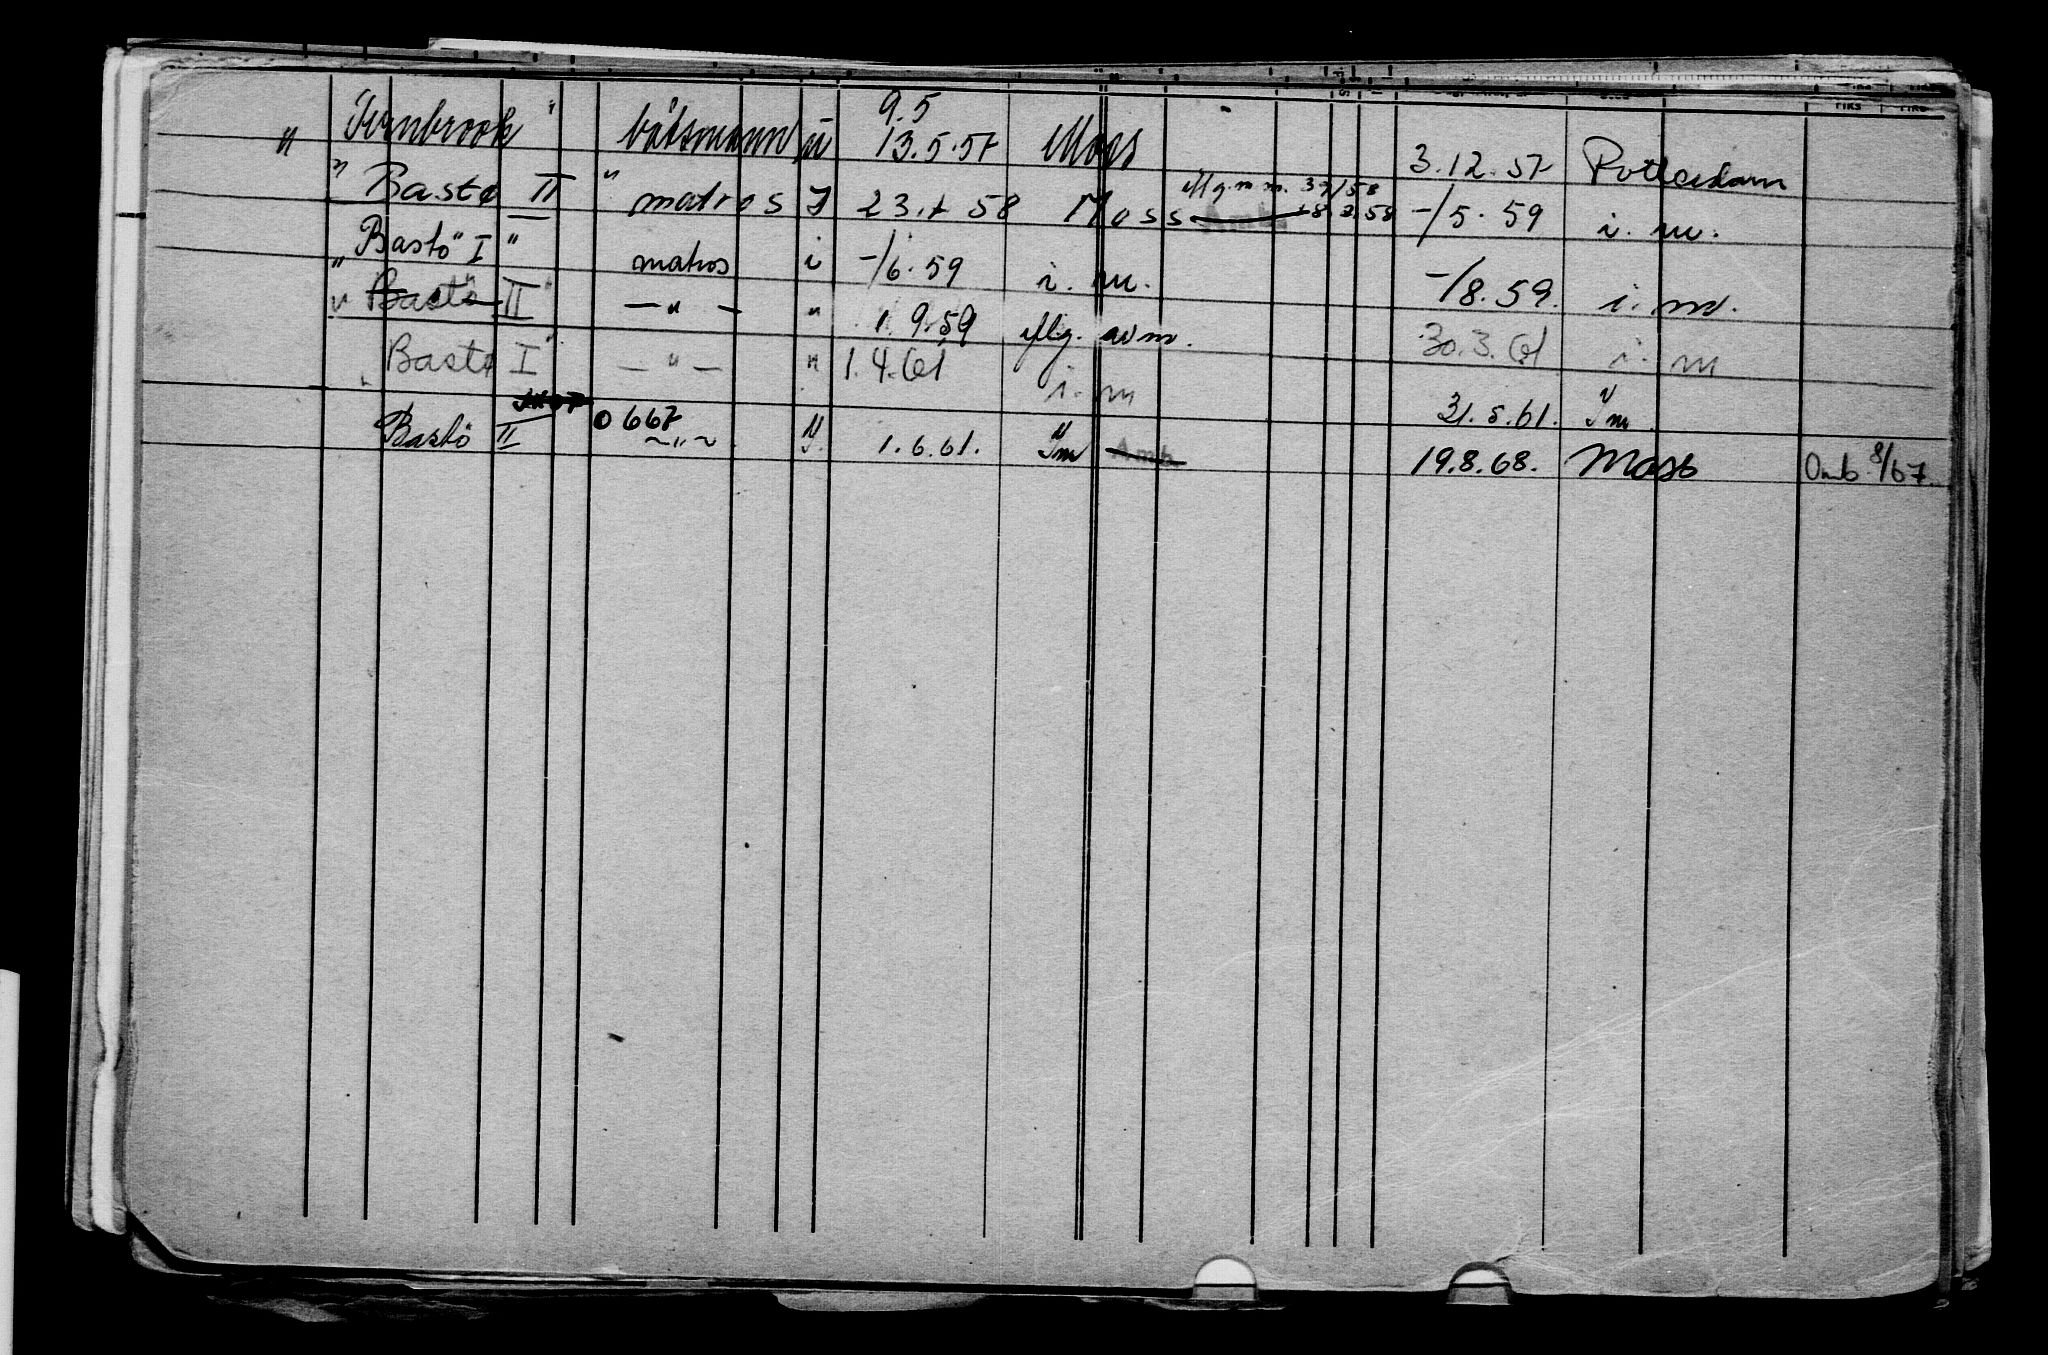 9.5
" båtsmann u 13.5.57 Moss 3.12.57 Rotterdam
" Bastø II " matros I 23.1 58 Moss 18.2.58 -/5.59 i. m.
" Bastö I " matros i -/6.59 i. m. -/8.59. i. m.
" Bastö II " — " — " 1.9.59 iflg. av m. 30.3.61 i. m
Bastø I " — " — " 1.4.61 i. m 31.5.61. I m.
0667
Bastö II ~ " ~ I. 1.6.61. I m Amb 19.8.68. Moss Omb. 8/67.